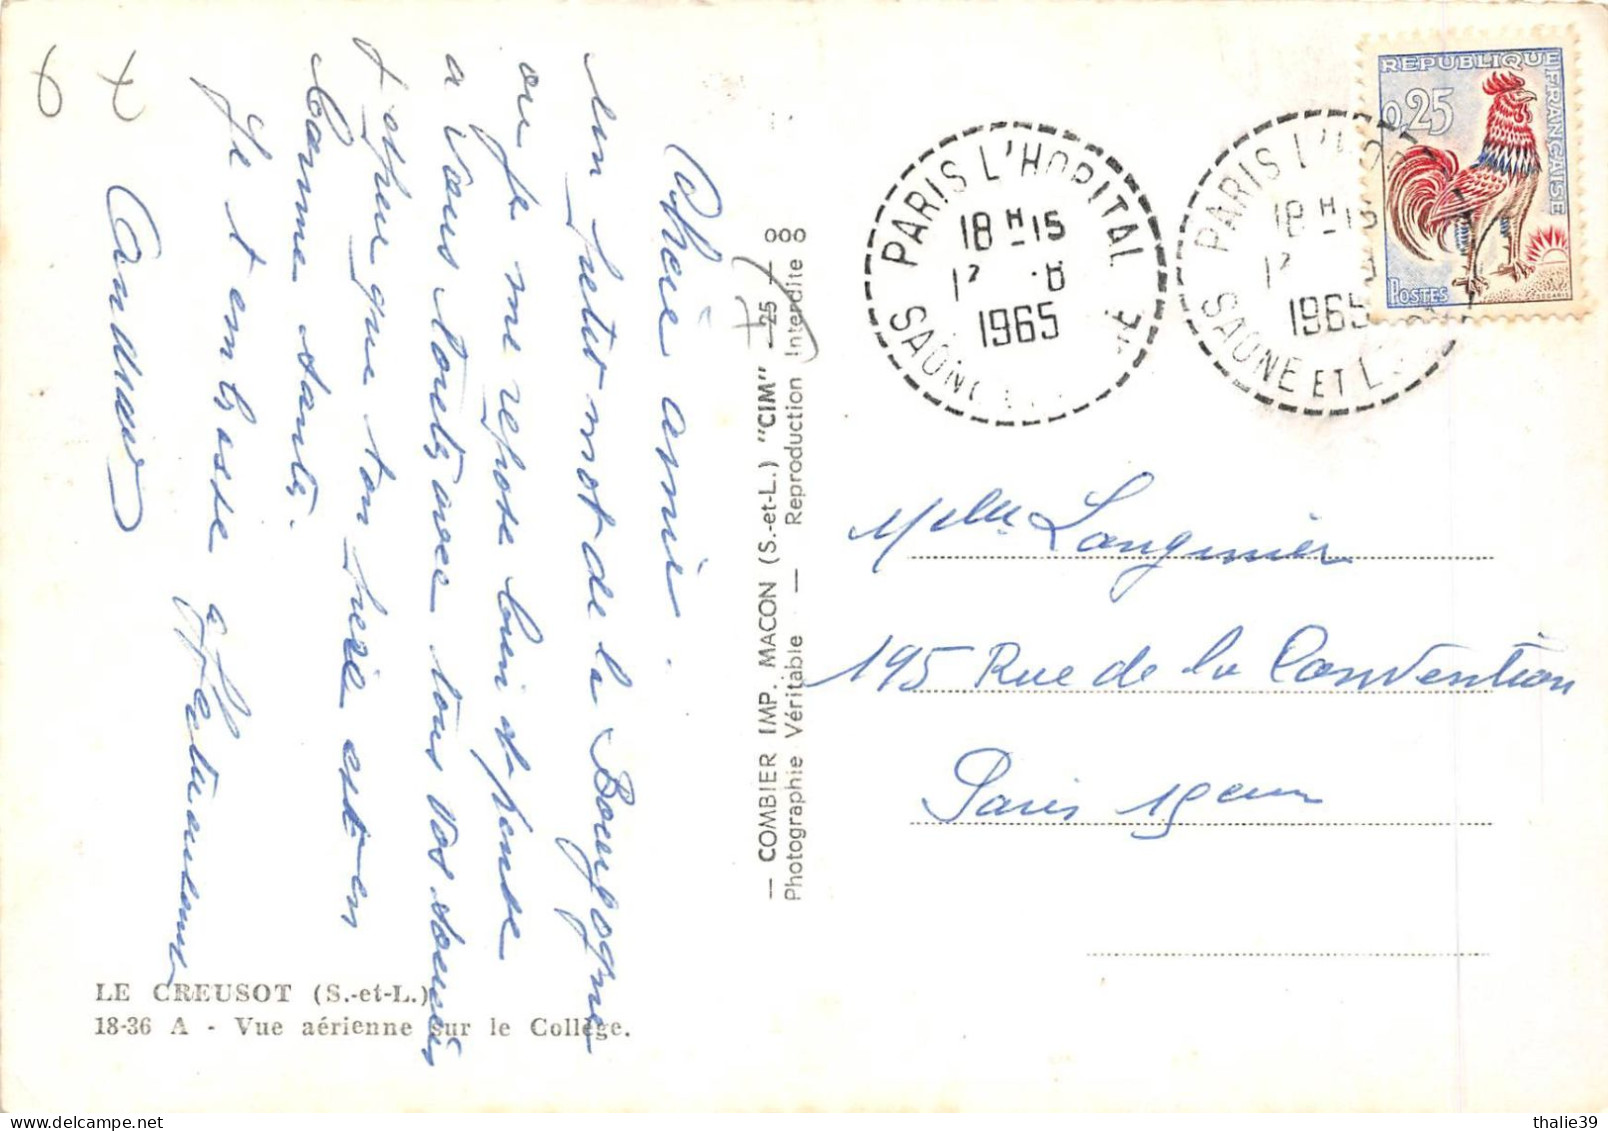 Chère amie.
un petit mot de la Bourgogne
ou je me repose bien et pense
a vous toutes avec tous vos soucis
J espère que ton frère est en
bonne santé.
Je t embrasse affectueusement
— COMBIER IMP. MACON (S.-et-L.) "CIM" — 25 — 000
Photographie Véritable — Reproduction Interdite
LE CREUSOT (S.-et-L.)
18-36 A - Vue aérienne sur le Collège.
REPUBLIQUE FRANÇAISE
0,25
POSTES
PARIS L'HOPITAL
18 H 15
1965
SAÔNE
PARIS L'HOP
18 H 15
1965
SAONE ET L
Melle Langinier
195 Rue de la Convention
Paris 15eme
thalie39